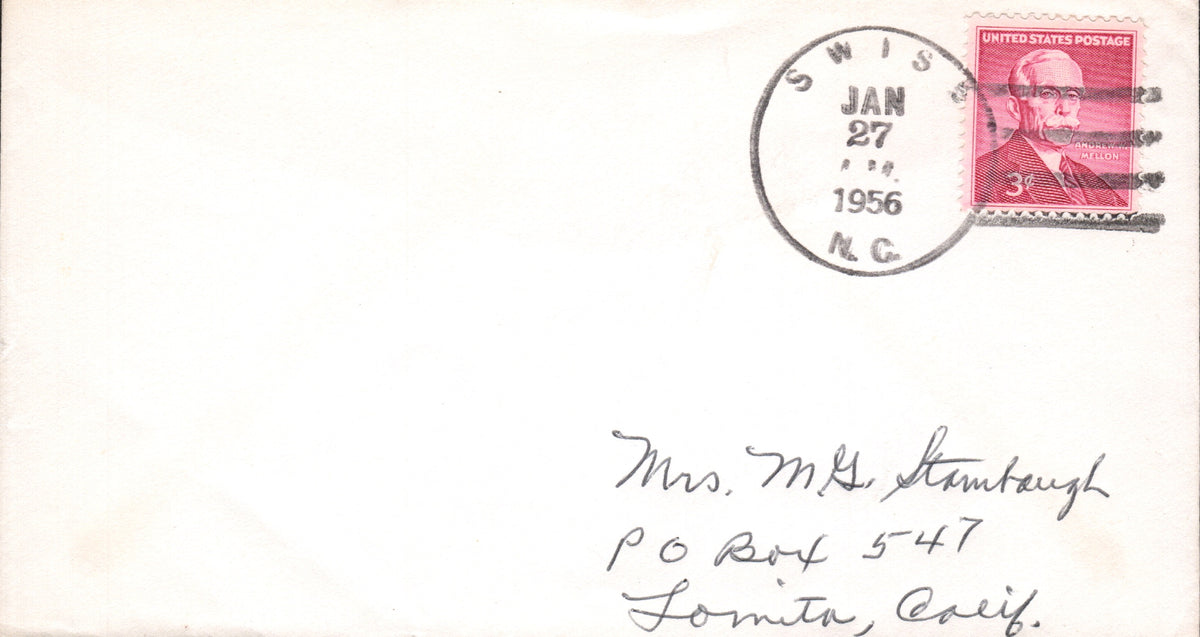 SWISS
JAN
27
1956
N.C.
UNITED STATES POSTAGE
ANDREW W.
MELLON
3¢
Mrs. M.G. Stambaugh
P O Box 547
Lomita, Calif.